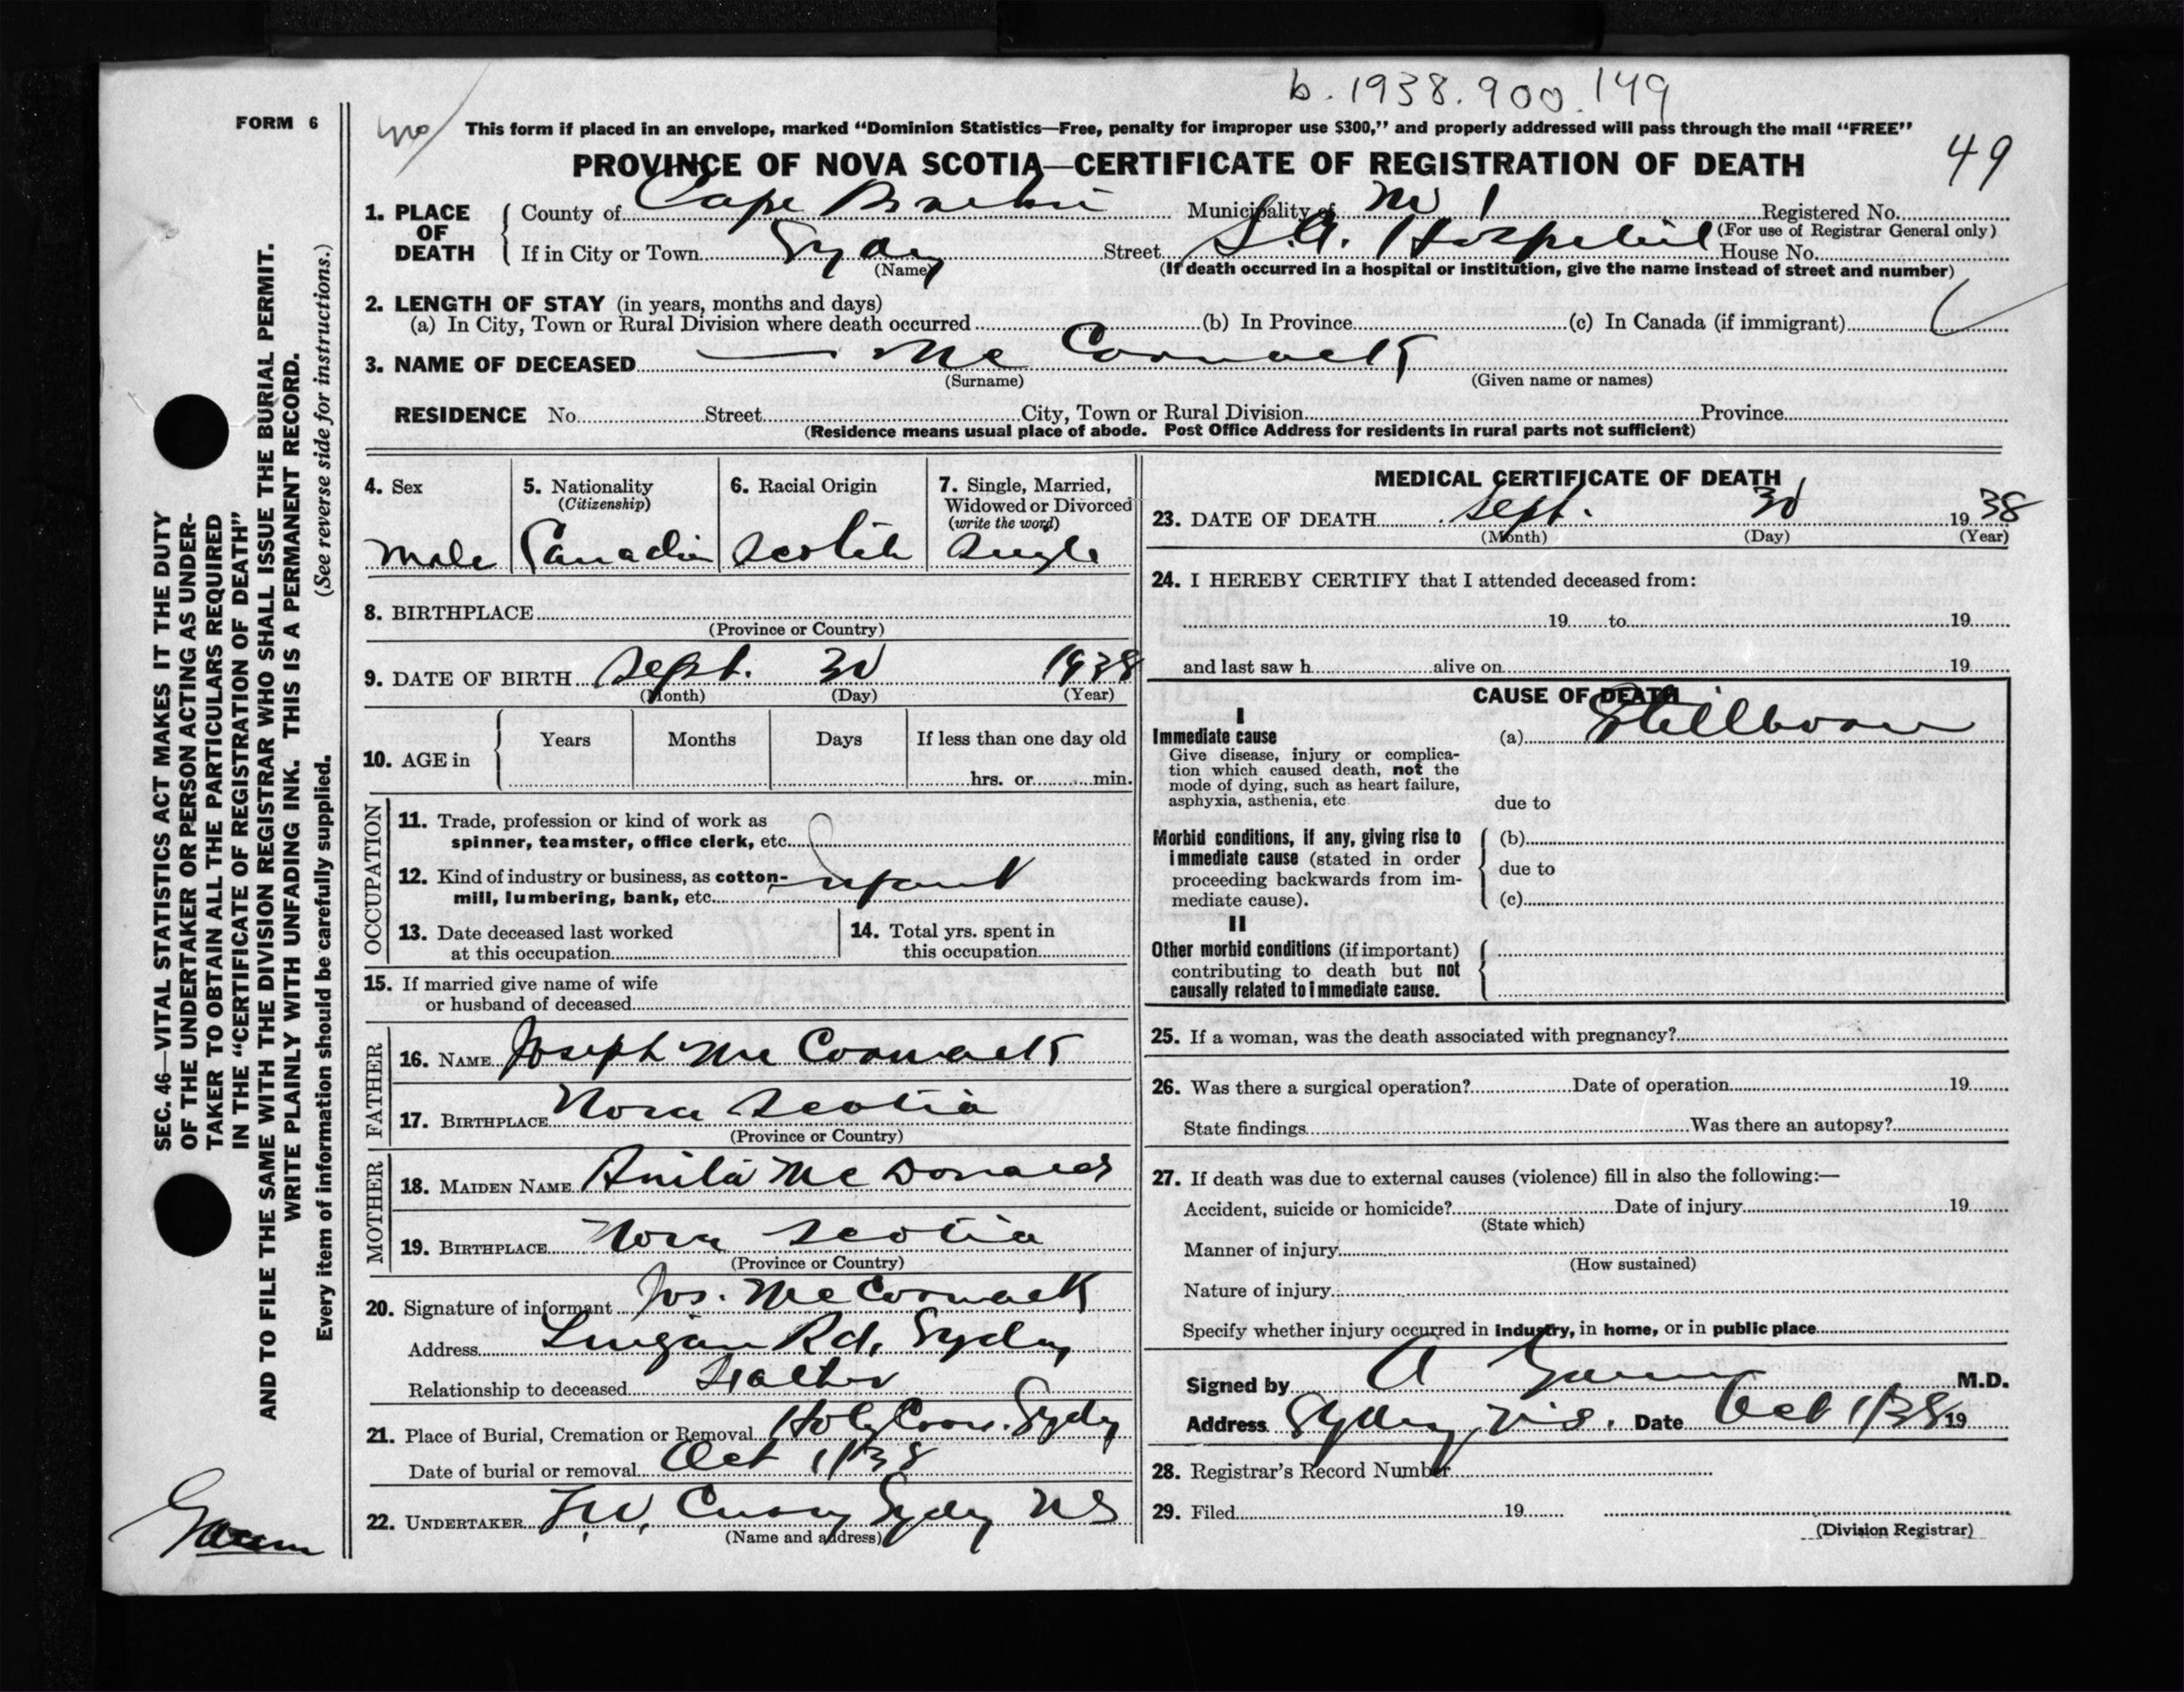 b. 1938. 900. 149
FORM 6
This form if placed in an envelope, marked “Dominion Statistics—Free, penalty for improper use $300,” and properly addressed will pass through the mail “FREE”
49
PROVINCE OF NOVA SCOTIA—CERTIFICATE OF REGISTRATION OF DEATH
1. PLACE OF DEATH
County of Cape Breton Municipality of No 1 Registered No.
(For use of Registrar General only)
If in City or Town Sydney Street S.A. Hospital House No.
(Name) (If death occurred in a hospital or institution, give the name instead of street and number)
2. LENGTH OF STAY (in years, months and days)
(a) In City, Town or Rural Division where death occurred (b) In Province (c) In Canada (if immigrant)
3. NAME OF DECEASED — Mc Cormack
(Surname) (Given name or names)
RESIDENCE No. Street City, Town or Rural Division Province
(Residence means usual place of abode. Post Office Address for residents in rural parts not sufficient)
4. Sex
Male
5. Nationality
(Citizenship)
Canadian
6. Racial Origin
Scotch
7. Single, Married,
Widowed or Divorced
(write the word)
Single
8. BIRTHPLACE
(Province or Country)
9. DATE OF BIRTH Sept. 30 1938
(Month) (Day) (Year)
10. AGE in Years Months Days If less than one day old
hrs. or min.
OCCUPATION
11. Trade, profession or kind of work as
spinner, teamster, office clerk, etc.
12. Kind of industry or business, as cotton-
mill, lumbering, bank, etc. Infant
13. Date deceased last worked
at this occupation
14. Total yrs. spent in
this occupation
15. If married give name of wife
or husband of deceased
FATHER
16. NAME Joseph Mc Cormack
17. BIRTHPLACE Nova Scotia
(Province or Country)
MOTHER
18. MAIDEN NAME Anita Mc Donald
19. BIRTHPLACE Nova Scotia
(Province or Country)
20. Signature of informant Jos. McCormack
Address Lingan Rd, Sydney
Relationship to deceased Father
21. Place of Burial, Cremation or Removal Holy Cross. Sydney
Date of burial or removal Oct 1/38
22. UNDERTAKER Sydney NS
(Name and address)
MEDICAL CERTIFICATE OF DEATH
23. DATE OF DEATH Sept. 30 1938
(Month) (Day) (Year)
24. I HEREBY CERTIFY that I attended deceased from:
19 to 19
and last saw h alive on 19
CAUSE OF DEATH
I
Immediate cause (a) Stillborn
Give disease, injury or complica-
tion which caused death, not the
mode of dying, such as heart failure,
asphyxia, asthenia, etc. due to
Morbid conditions, if any, giving rise to (b)
immediate cause (stated in order
proceeding backwards from im- due to
mediate cause). (c)
II
Other morbid conditions (if important)
contributing to death but not
causally related to immediate cause.
25. If a woman, was the death associated with pregnancy?
26. Was there a surgical operation? Date of operation 19
State findings Was there an autopsy?
27. If death was due to external causes (violence) fill in also the following:—
Accident, suicide or homicide? Date of injury 19
(State which)
Manner of injury
(How sustained)
Nature of injury
Specify whether injury occurred in industry, in home, or in public place
Signed by A M.D.
Address Sydney, N.S. Date Oct 1/38 19
28. Registrar's Record Number
29. Filed 19
(Division Registrar)
SEC. 46—VITAL STATISTICS ACT MAKES IT THE DUTY
OF THE UNDERTAKER OR PERSON ACTING AS UNDER-
TAKER TO OBTAIN ALL THE PARTICULARS REQUIRED
IN THE “CERTIFICATE OF REGISTRATION OF DEATH”
AND TO FILE THE SAME WITH THE DIVISION REGISTRAR WHO SHALL ISSUE THE BURIAL PERMIT.
WRITE PLAINLY WITH UNFADING INK. THIS IS A PERMANENT RECORD.
Every item of information should be carefully supplied. (See reverse side for instructions.)